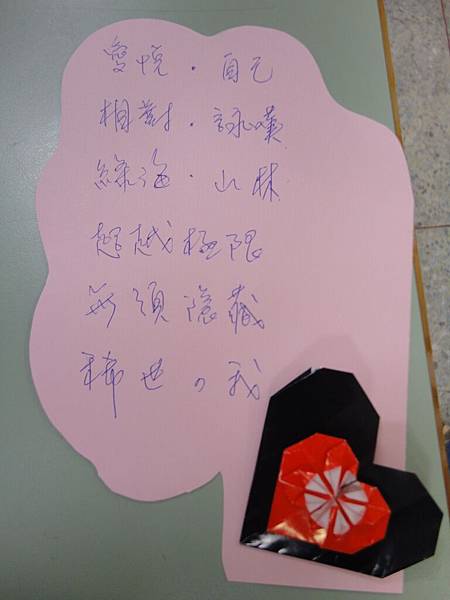 愛悅．自己
相對．詠嘆
綠海．山林
超越極限
無須隱藏
稀世の我